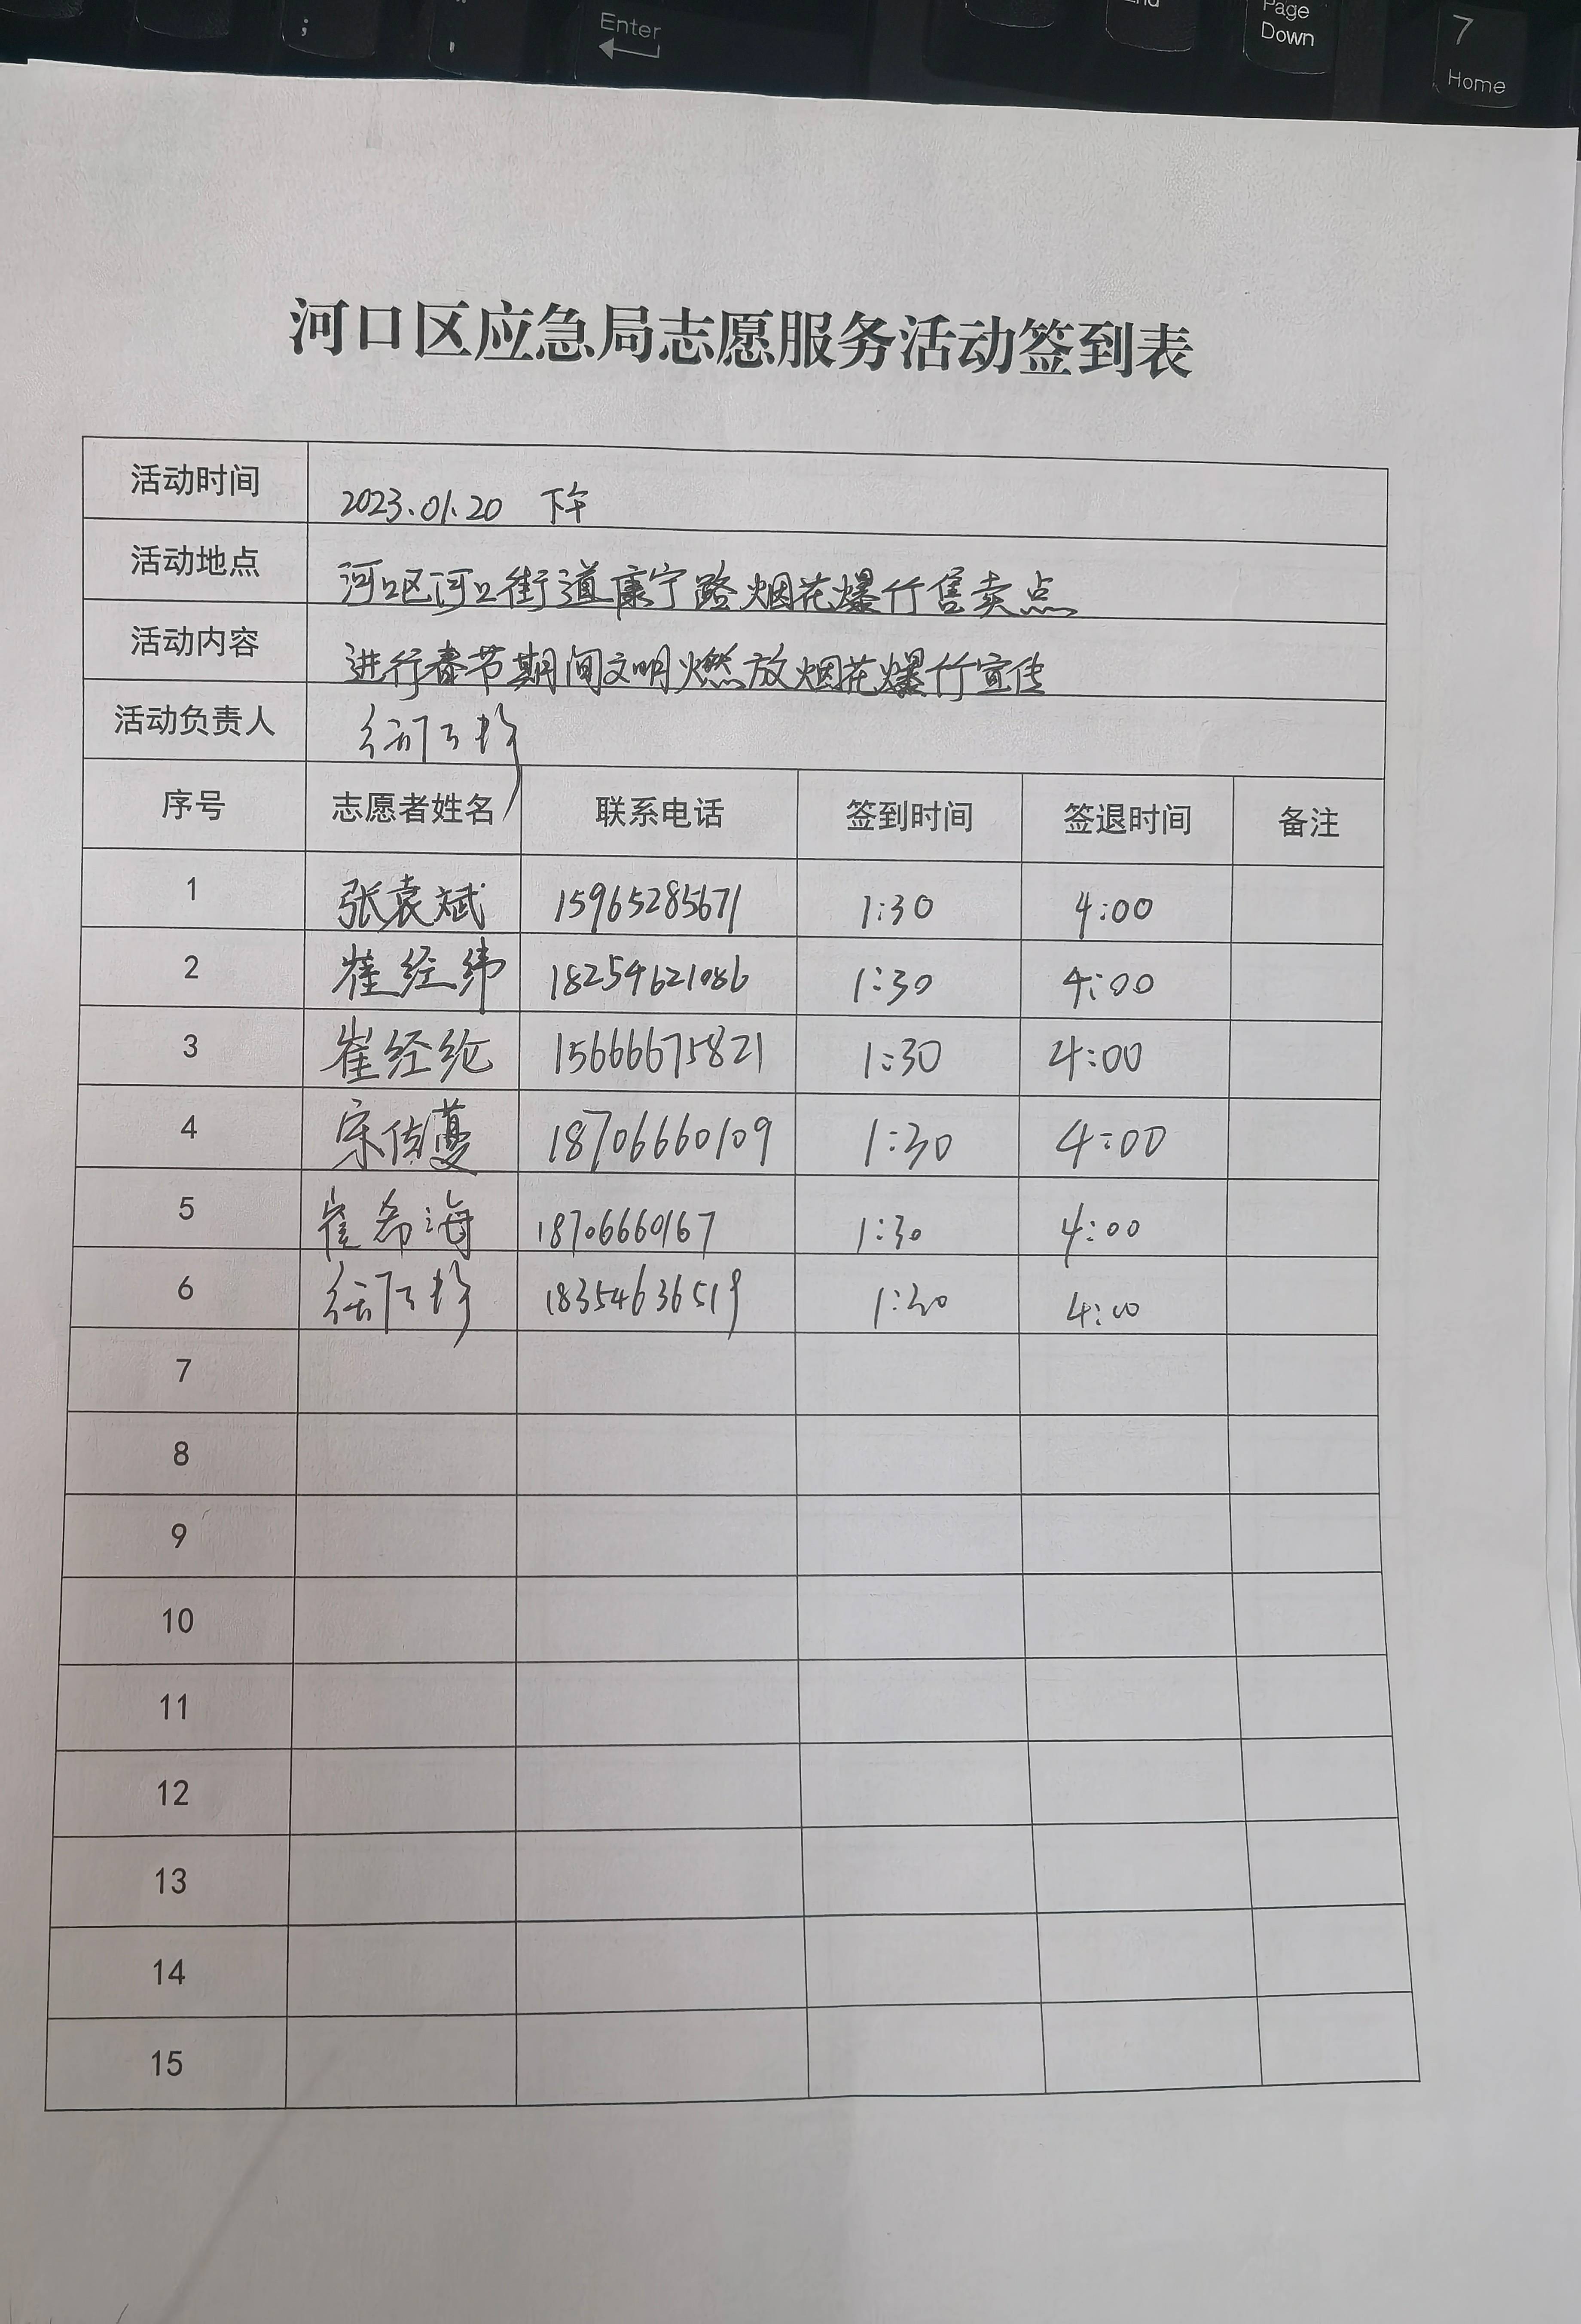 ;
,
Enter
Page
Down
7
Home
河口区应急局志愿服务活动签到表
活动时间 2023.01.20 下午
活动地点 河口区河口街道康宁路烟花爆竹售卖点
活动内容 进行春节期间文明燃放烟花爆竹宣传
活动负责人
序号 志愿者姓名 联系电话 签到时间 签退时间 备注
1 张袁斌 15965285671 1:30 4:00
2 崔经纬 18254621086 1:30 4:00
3 崔经纶 15666675821 1:30 4:00
4 宋佳蔓 18706660109 1:30 4:00
5 崔希海 18706660167 1:30 4:00
6 18354636519 1:30 4:00
7
8
9
10
11
12
13
14
15